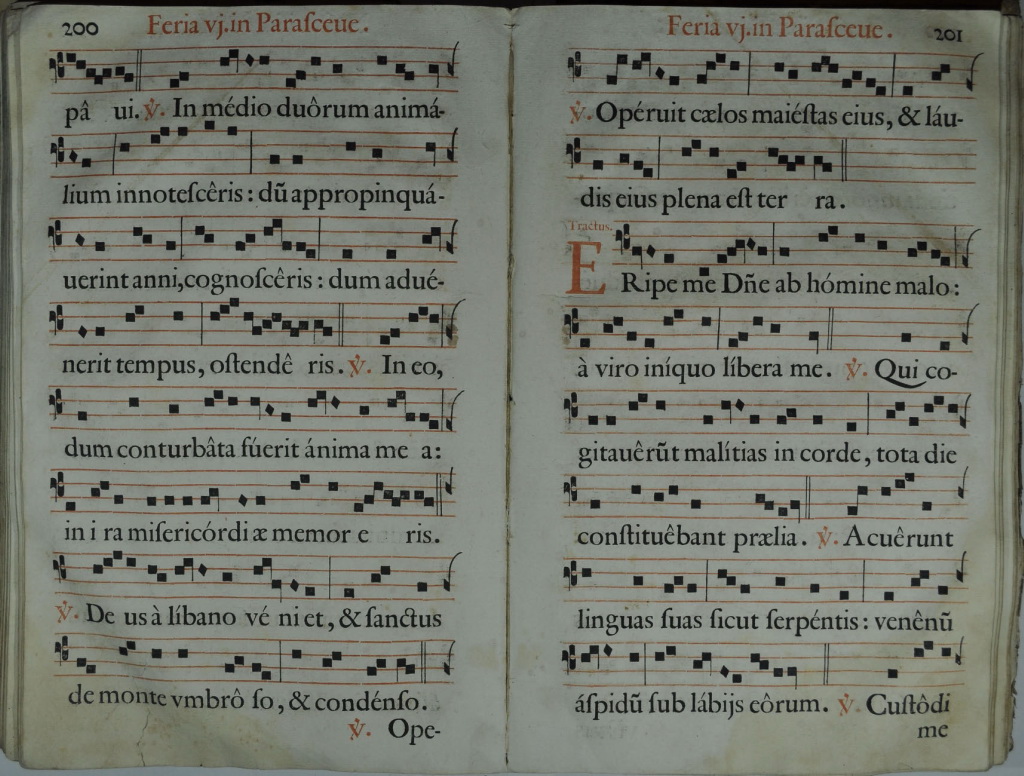 200 Feria vj. in Paraſceue.
pâ ui. ℣. In médio duôrum animá-
lium innoteſcêris : dũ appropinquá-
uerint anni, cognoſcêris : dum adué-
nerit tempus, oſtendê ris. ℣. In eo,
dum conturbâta fúerit ánima me a:
in i ra miſericórdi æ memor e ris.
℣. De us à líbano vé ni et, & ſanctus
de monte vmbrô ſo, & condénſo.
℣. Ope-
Feria vj. in Paraſceue. 201
℣. Opéruit cælos maiéſtas eius, & láu-
dis eius plena eſt ter ra.
Tractus.
ERipe me Dñe ab hómine malo:
à viro iníquo líbera me. ℣. Qui co-
gitauêrũt malítias in corde, tota die
conſtituêbant prælia. ℣. Acuêrunt
linguas ſuas ſicut ſerpéntis: venênũ
áſpidũ ſub lábijs eôrum. ℣. Cuſtôdi
me